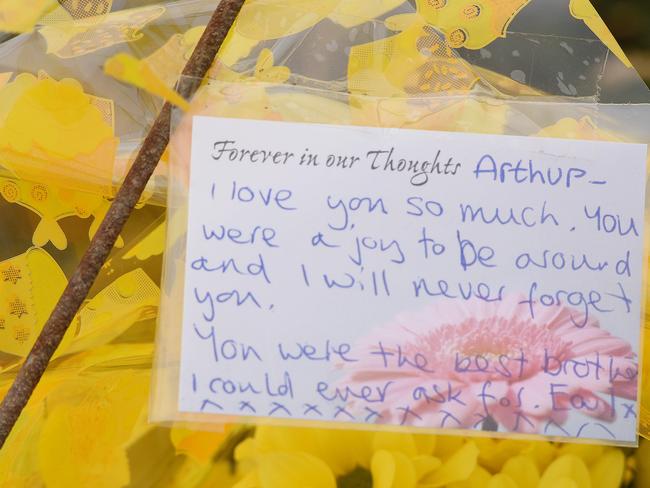 Forever in our Thoughts Arthur-
I love you so much. You
were a joy to be around
and I will never forget
you.
You were the best brothe
I could ever ask for. Earl x
^ x x x x x x x x x x x